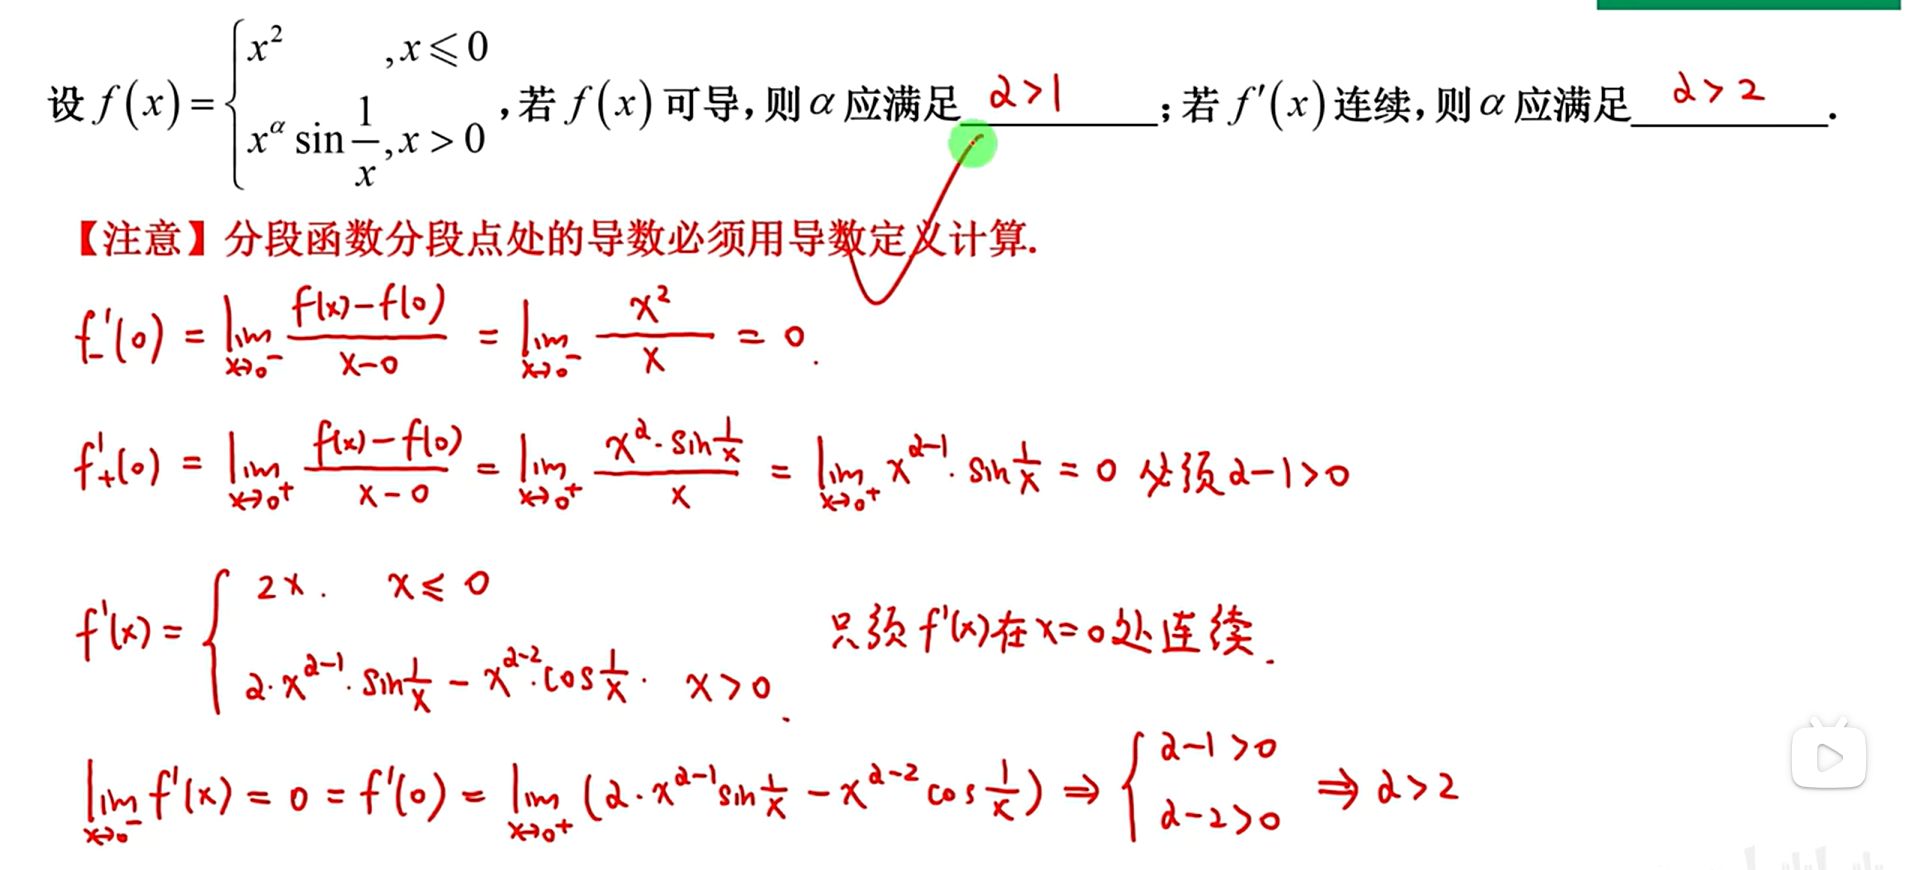 设 f(x) = { x² , x ≤ 0
x^α sin 1/x , x > 0 , 若 f(x) 可导, 则 α 应满足 α>1 ; 若 f′(x) 连续, 则 α 应满足 α>2 .
【注意】分段函数分段点处的导数必须用导数定义计算.
f₋′(0) = lim_{x→0⁻} (f(x)−f(0))/(x−0) = lim_{x→0⁻} x²/x = 0.
f₊′(0) = lim_{x→0⁺} (f(x)−f(0))/(x−0) = lim_{x→0⁺} (x^α·sin 1/x)/x = lim_{x→0⁺} x^{α−1}·sin 1/x = 0 必须 α−1>0
f′(x) = { 2x. x ≤ 0
α·x^{α−1}·sin 1/x − x^{α−2}·cos 1/x. x>0.
只须 f′(x) 在 x=0 处连续.
lim_{x→0⁻} f′(x) = 0 = f′(0) = lim_{x→0⁺} (α·x^{α−1} sin 1/x − x^{α−2} cos 1/x) ⇒ { α−1>0
α−2>0 ⇒ α>2